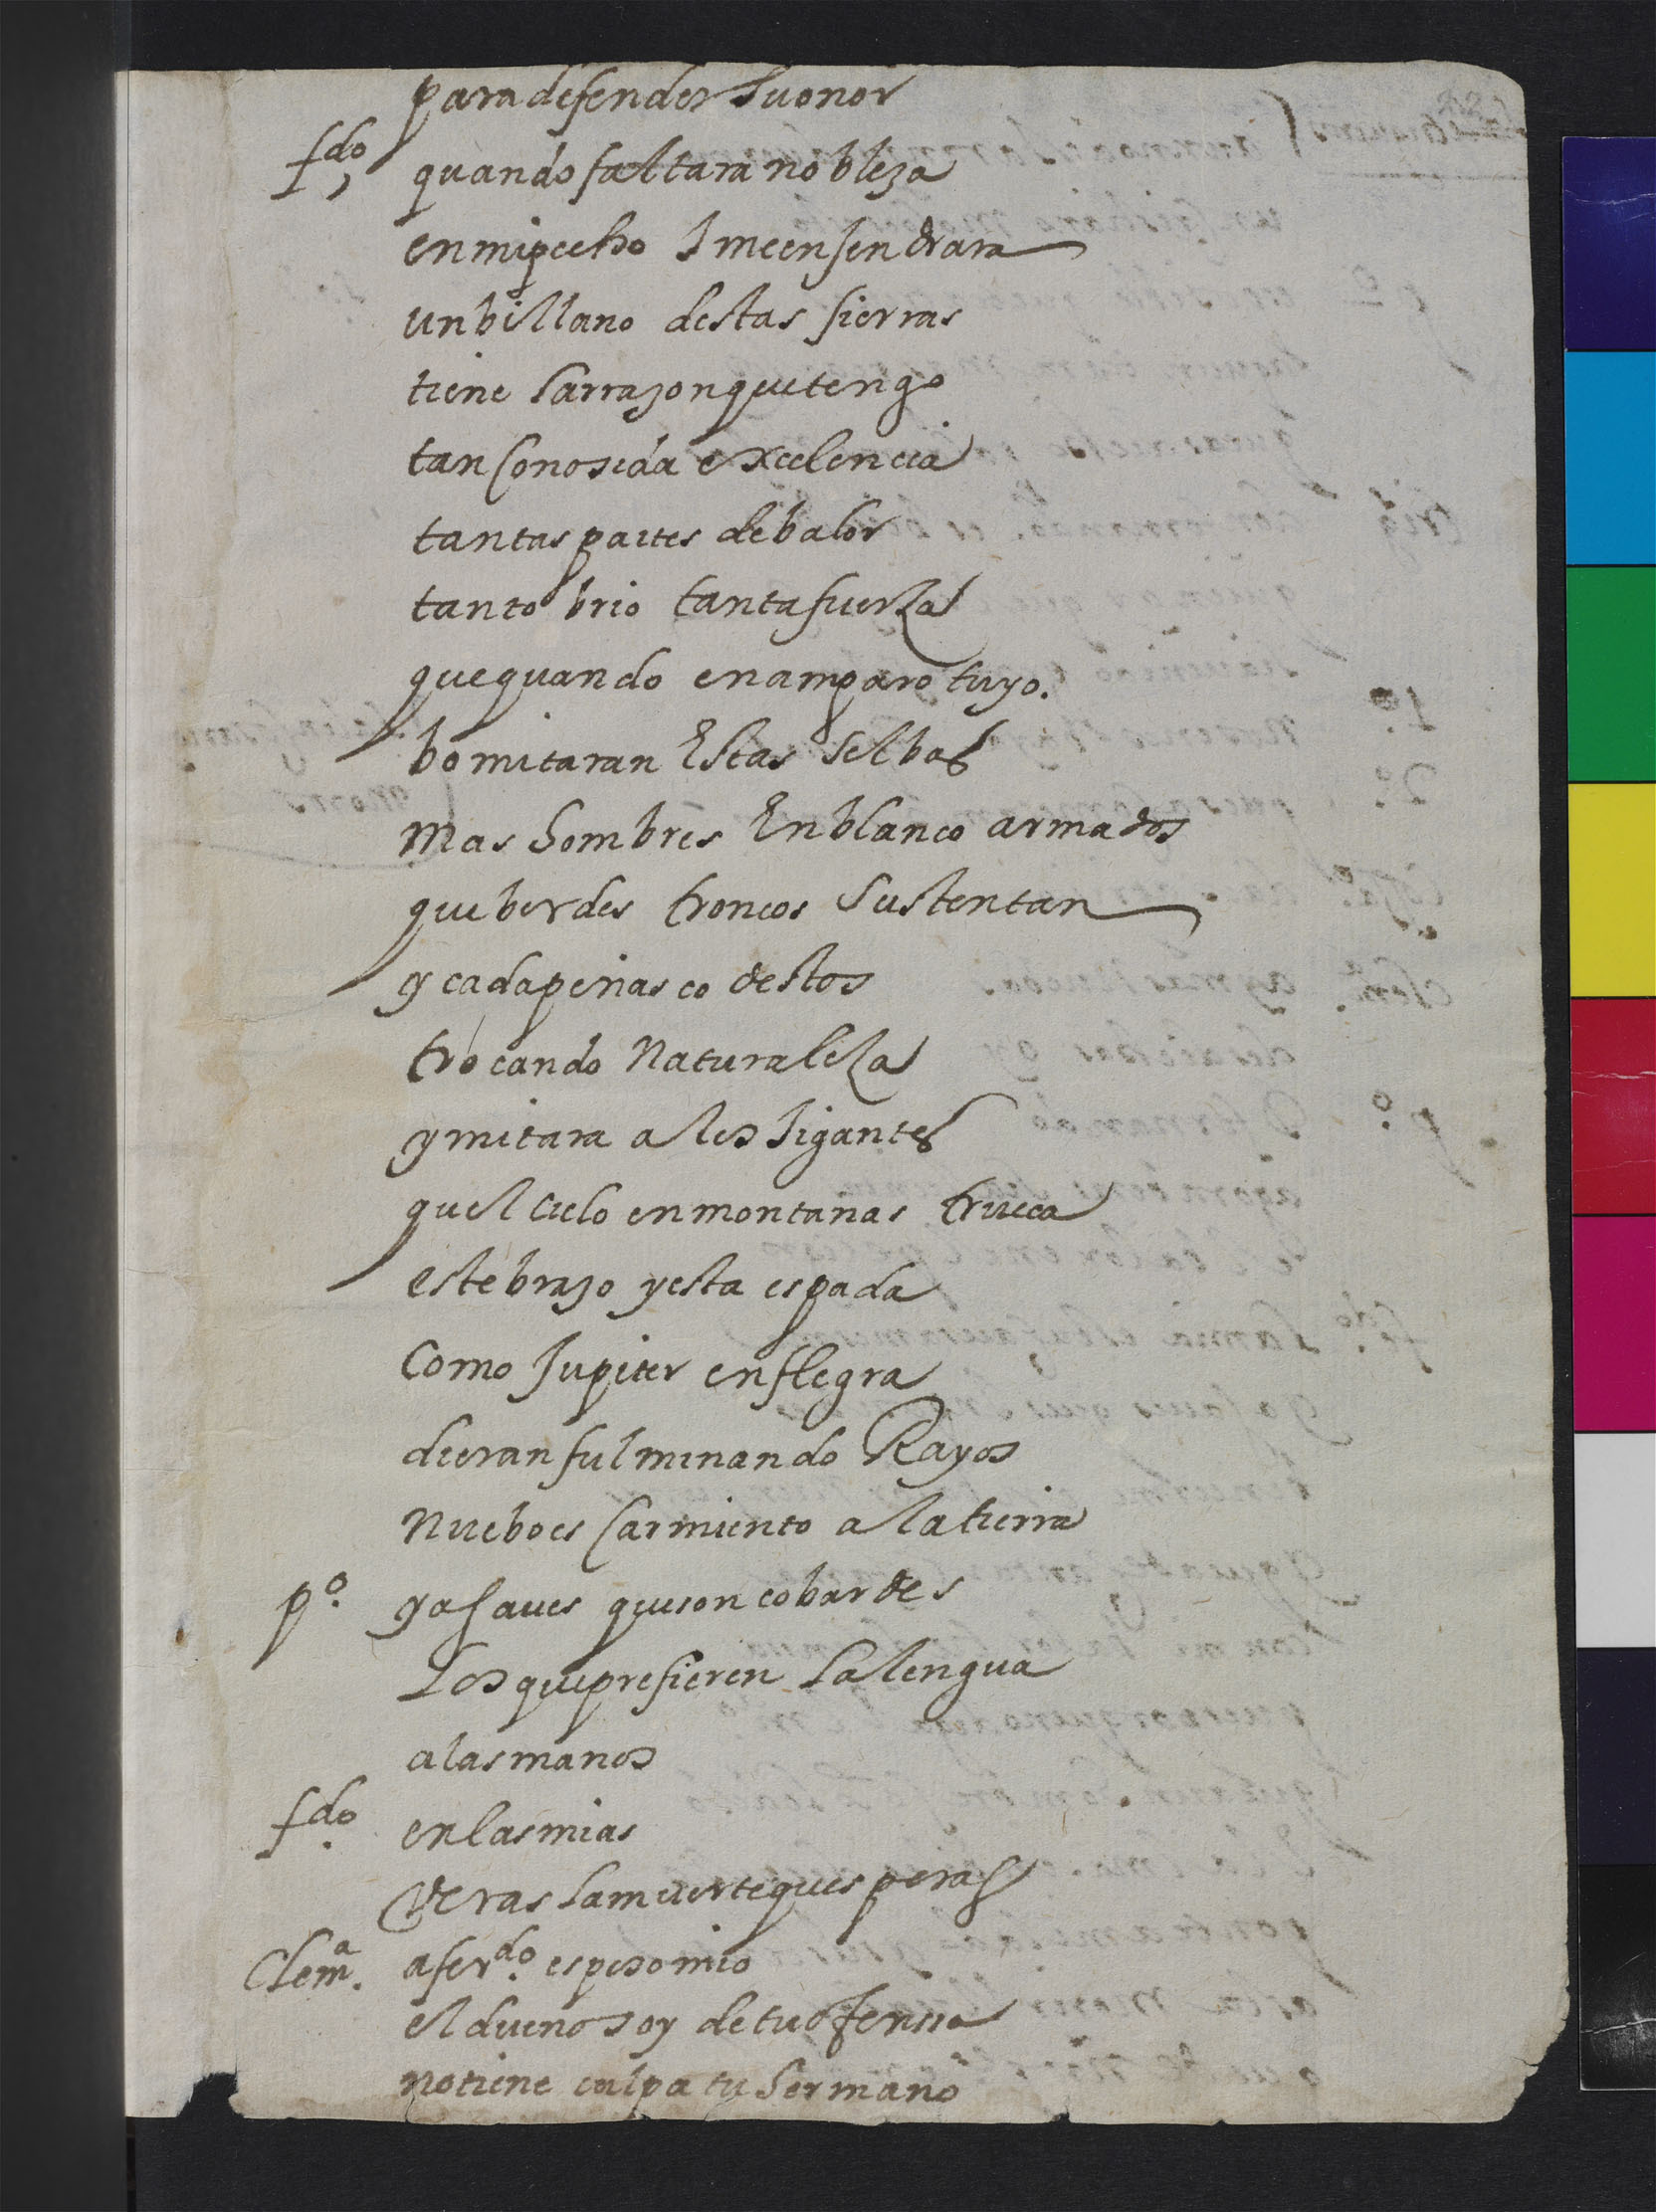 para defender su onor
fdo, quando faltara nobleza
en mi pecho i me ensendrara
un billano destas sierras
tiene la rrazon que tengo
tan conosida excelencia
tantas partes de balor
tanto brio tanta fuerza
que quando en amparo tuyo.
bomitaran Estas selbas
mas hombres En blanco armados
que berdes troncos sustentan
y cada peñasco destos
trocando naturaleza
ymitara a los jigantes
quel cielo en montañas trueca
este brazo y esta espada
Como Jupiter en flegra
dieran fulminando Rayos
nuebo escarmiento a la tierra
po. ya saues que son cobardes
los que prefieren la lengua
a las manos
fdo. en las mias
veras la muerte que esperas
Clema. a ferdo. esposo mio
el dueño soy de tu ofensa
no tiene culpa tu hermano